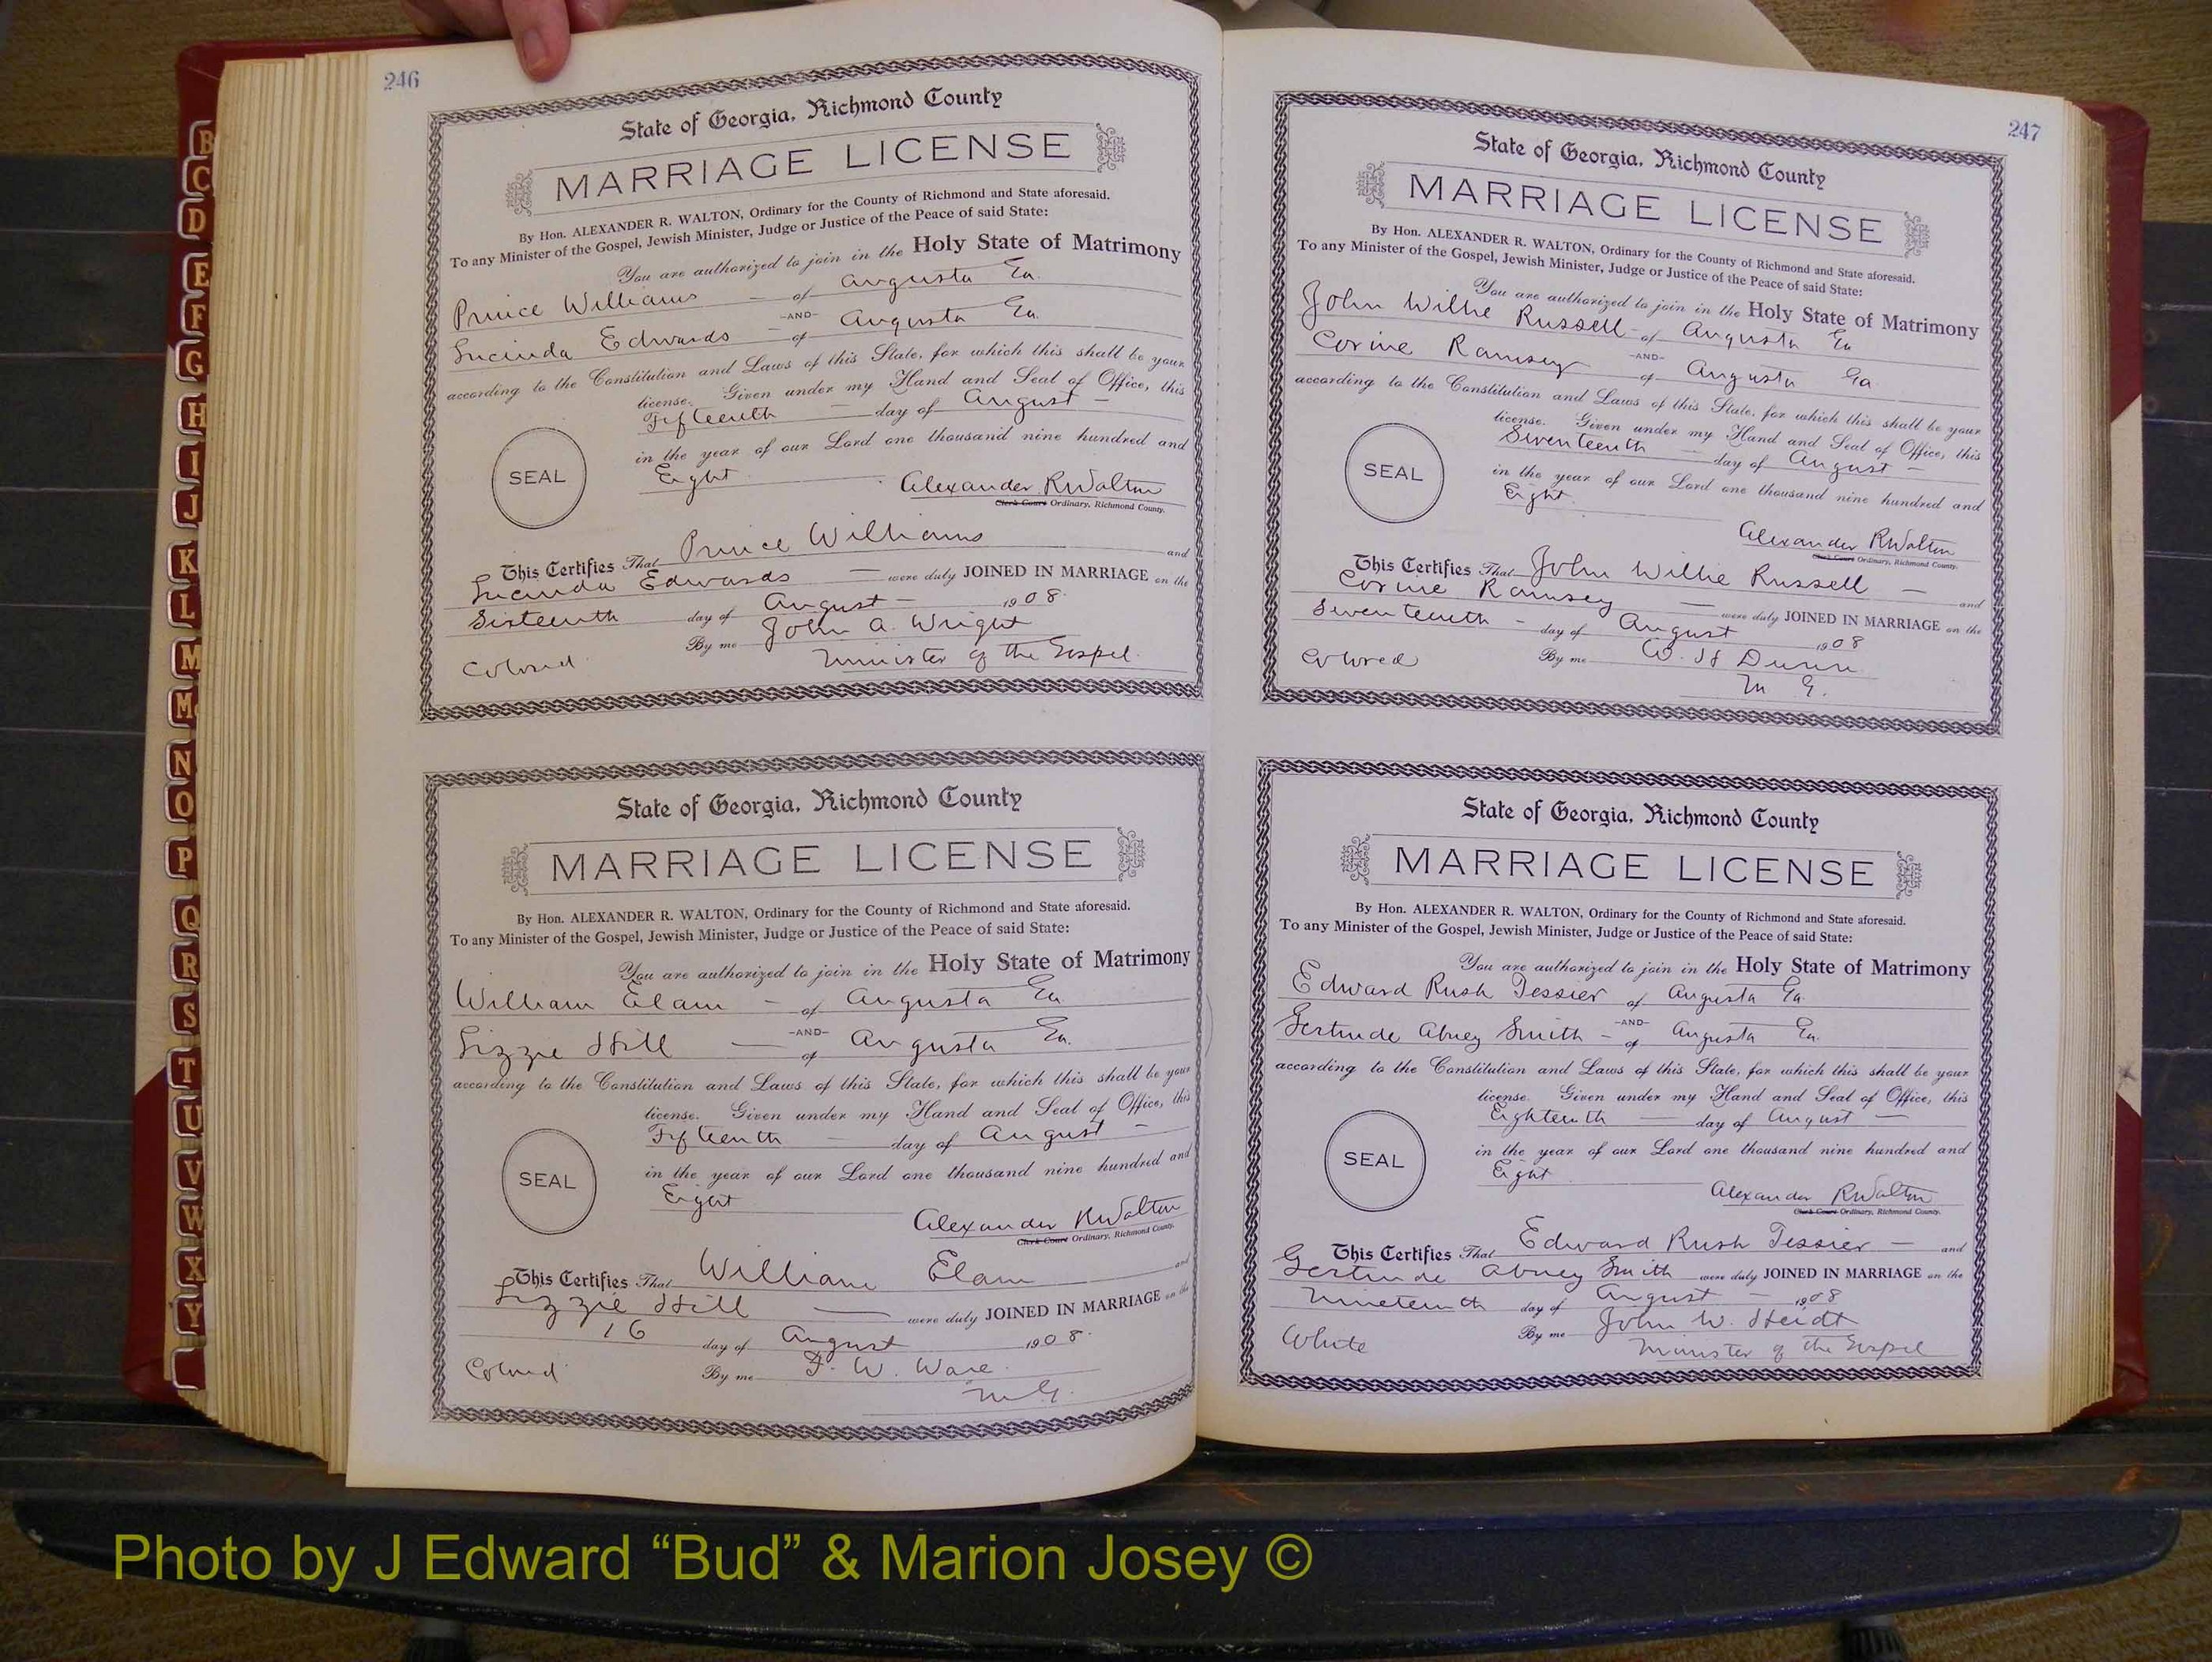 246
State of Georgia, Richmond County
MARRIAGE LICENSE
By Hon. ALEXANDER R. WALTON, Ordinary for the County of Richmond and State aforesaid.
To any Minister of the Gospel, Jewish Minister, Judge or Justice of the Peace of said State:
You are authorized to join in the Holy State of Matrimony
Prince Williams — of Augusta Ga.
-AND-
Lucinda Edwards — of Augusta Ga.
according to the Constitution and Laws of this State, for which this shall be your
license. Given under my Hand and Seal of Office, this
Fifteenth day of August —
in the year of our Lord one thousand nine hundred and
SEAL
Eight
Alexander R Walton
Clerk Court Ordinary, Richmond County.
This Certifies That Prince Williams and
Lucinda Edwards — were duly JOINED IN MARRIAGE on the
Sixteenth day of August — 1908.
By me John A. Wright
Colored Minister of the Gospel.
State of Georgia, Richmond County
MARRIAGE LICENSE
By Hon. ALEXANDER R. WALTON, Ordinary for the County of Richmond and State aforesaid.
To any Minister of the Gospel, Jewish Minister, Judge or Justice of the Peace of said State:
You are authorized to join in the Holy State of Matrimony
William Elam — of Augusta Ga.
-AND-
Lizzie Hill — of Augusta Ga.
according to the Constitution and Laws of this State, for which this shall be your
license. Given under my Hand and Seal of Office, this
Fifteenth — day of August —
in the year of our Lord one thousand nine hundred and
SEAL
Eight
Alexander R Walton
Clerk Court Ordinary, Richmond County.
This Certifies That William Elam and
Lizzie Hill — were duly JOINED IN MARRIAGE on the
16 day of August 1908.
Colored By me F. W. Ware
M.G.
247
State of Georgia, Richmond County
MARRIAGE LICENSE
By Hon. ALEXANDER R. WALTON, Ordinary for the County of Richmond and State aforesaid.
To any Minister of the Gospel, Jewish Minister, Judge or Justice of the Peace of said State:
You are authorized to join in the Holy State of Matrimony
John Willie Russell — of Augusta Ga
-AND-
Corine Ramsey of Augusta Ga.
according to the Constitution and Laws of this State, for which this shall be your
license. Given under my Hand and Seal of Office, this
Seventeenth — day of August —
in the year of our Lord one thousand nine hundred and
SEAL
Eight
Alexander R Walton
Clerk Court Ordinary, Richmond County.
This Certifies That John Willie Russell — and
Corine Ramsey — were duly JOINED IN MARRIAGE on the
Seventeenth — day of August 1908
Colored By me W. H Dunn
M G.
State of Georgia, Richmond County
MARRIAGE LICENSE
By Hon. ALEXANDER R. WALTON, Ordinary for the County of Richmond and State aforesaid.
To any Minister of the Gospel, Jewish Minister, Judge or Justice of the Peace of said State:
You are authorized to join in the Holy State of Matrimony
Edward Rush Tessier of Augusta Ga.
-AND-
Gertrude Abney Smith — of Augusta Ga.
according to the Constitution and Laws of this State, for which this shall be your
license. Given under my Hand and Seal of Office, this
Eighteenth — day of August —
in the year of our Lord one thousand nine hundred and
SEAL
Eight
Alexander R Walton
Clerk Court Ordinary, Richmond County.
This Certifies That Edward Rush Tessier — and
Gertrude Abney Smith were duly JOINED IN MARRIAGE on the
Nineteenth day of August — 1908
White By me John W. Heidt
Minister of the Gospel
B
C
D
E
F
G
H
I
J
K
L
M
Mc
N
O
P
Q
R
S
T
U
V
W
X
Y
Photo by J Edward “Bud” & Marion Josey ©